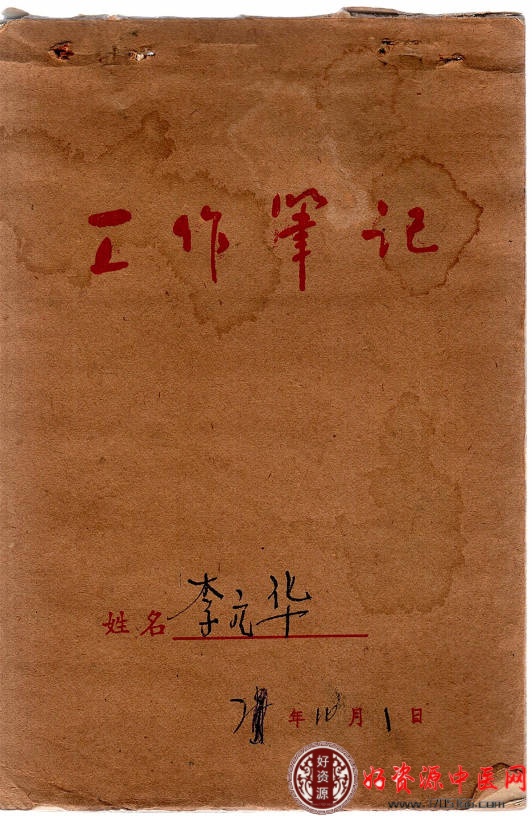 工作笔记
姓名 李元华
年 10 月 1 日
好资源
好资源中医网